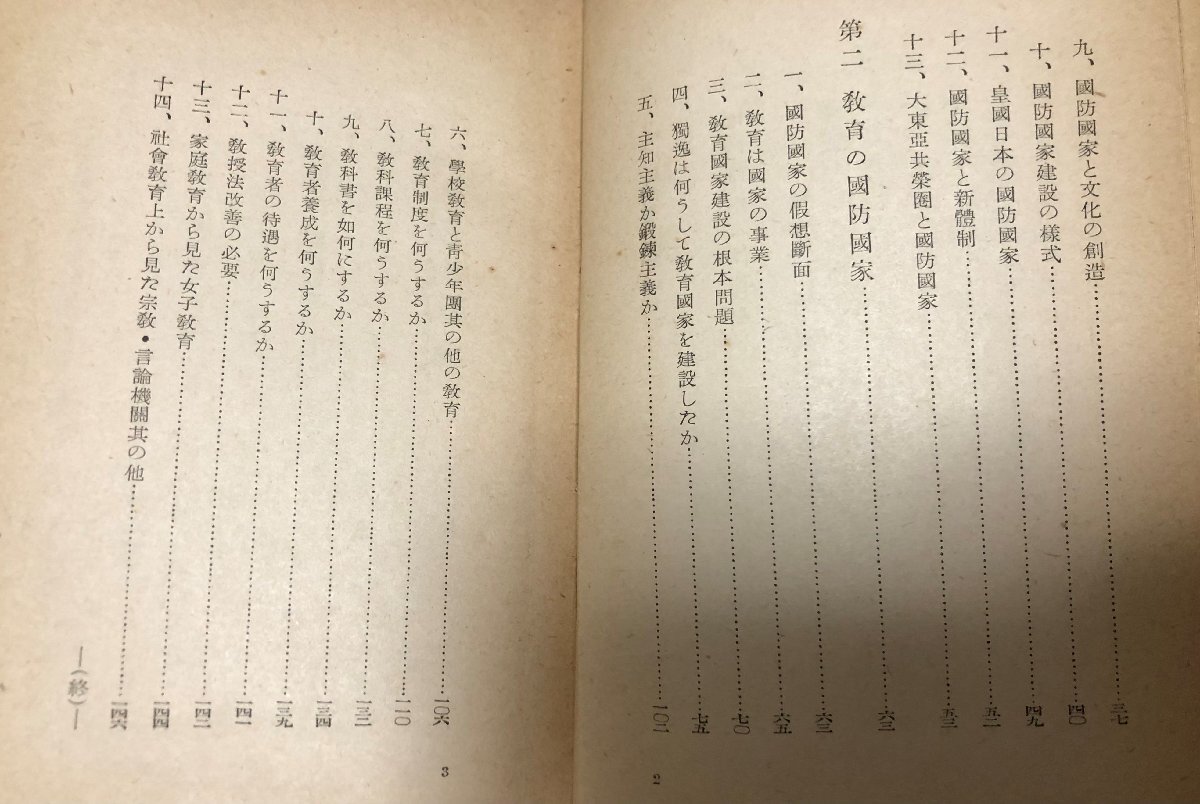 九、國防國家と文化の創造……三七
十、國防國家建設の樣式……四〇
十一、皇國日本の國防國家……四九
十二、國防國家と新體制……五二
十三、大東亞共榮圈と國防國家……五三
第二 敎育の國防國家……六三
一、國防國家の假想斷面……六三
二、敎育は國家の事業……六五
三、敎育國家建設の根本問題……七〇
四、獨逸は何うして敎育國家を建設したか……七五
五、主知主義か鍛鍊主義か……一〇二
2
六、學校敎育と靑少年團其の他の敎育……一〇六
七、敎育制度を何うするか……一一〇
八、敎科課程を何うするか
九、敎科書を如何にするか……一三二
十、敎育者養成を何うするか……一三四
十一、敎育者の待遇を何うするか……一三九
十二、敎授法改善の必要……一四一
十三、家庭敎育から見た女子敎育……一四二
十四、社會敎育上から見た宗敎・言論機關其の他……一四六
―(終)―
3